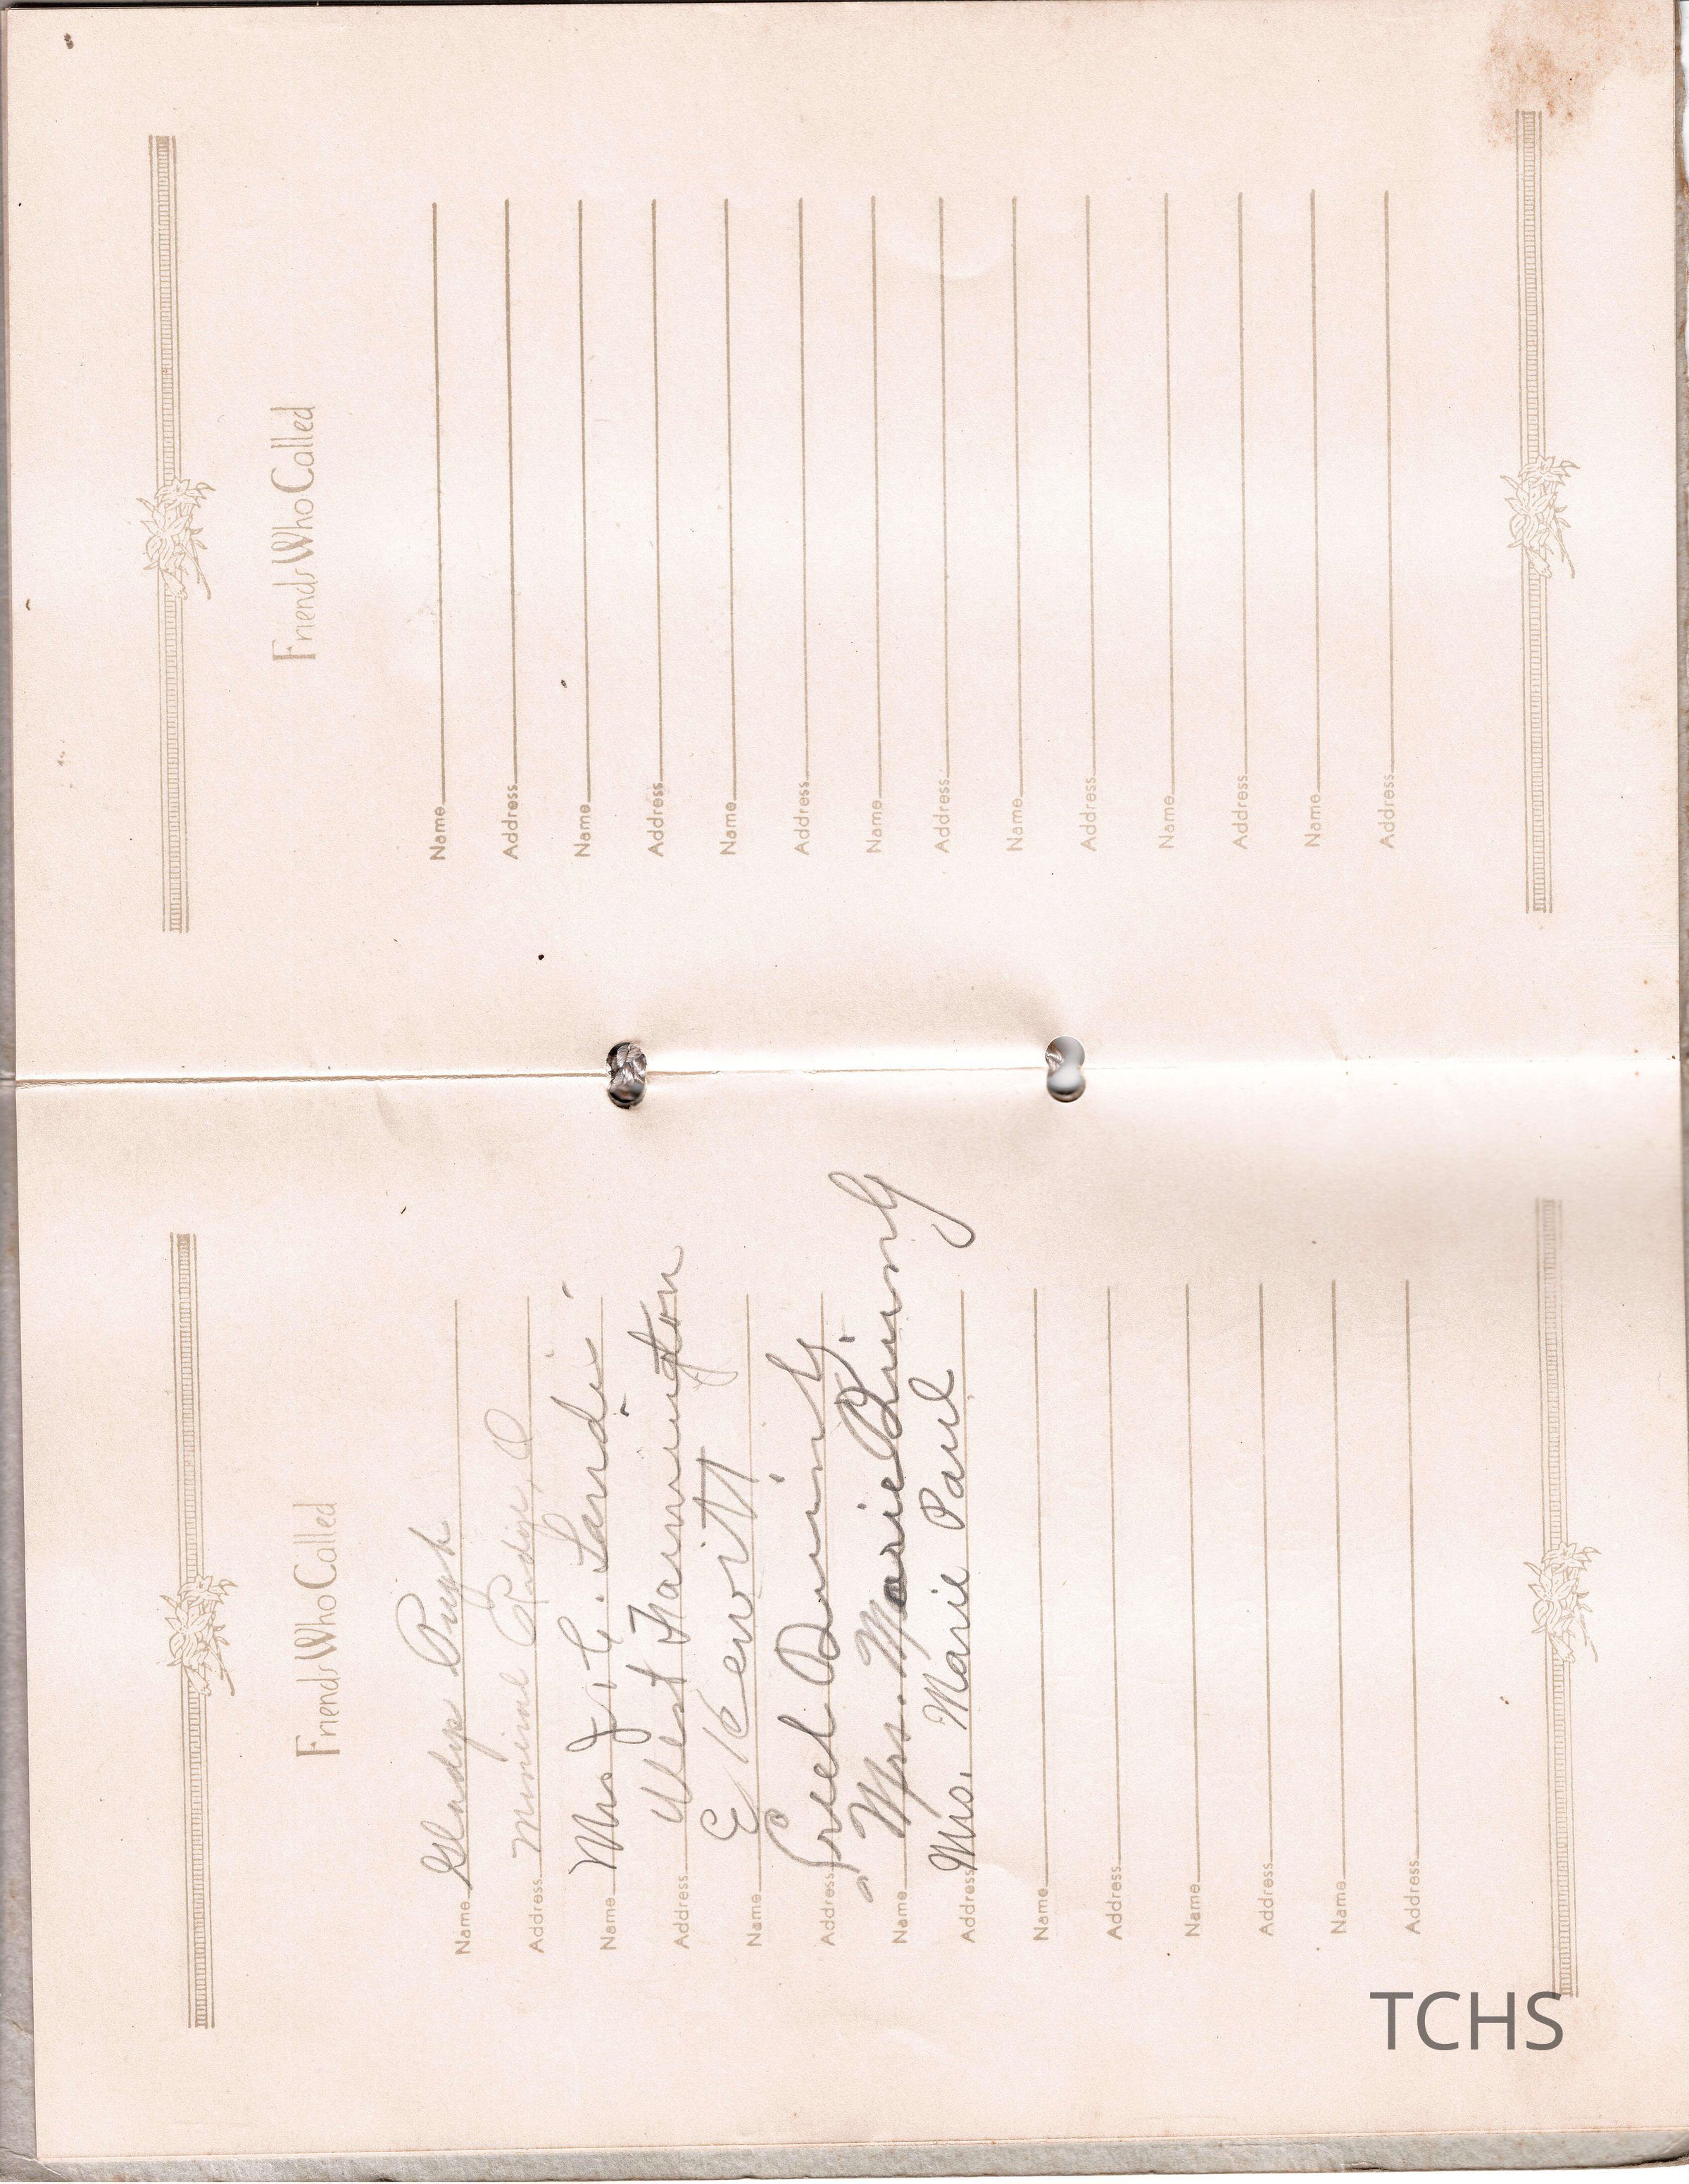 Friends Who Called
Name Gladys Pugh
Address Mineral Ridge, O
Name Mrs J. C. Landis
Address West Farmington
Name E Hewitt
Address
Name Mrs. Marie
Address Mrs. Marie Paul
Name
Address
Name
Address
Name
Address
Friends Who Called
Name
Address
Name
Address
Name
Address
Name
Address
Name
Address
Name
Address
Name
Address
TCHS